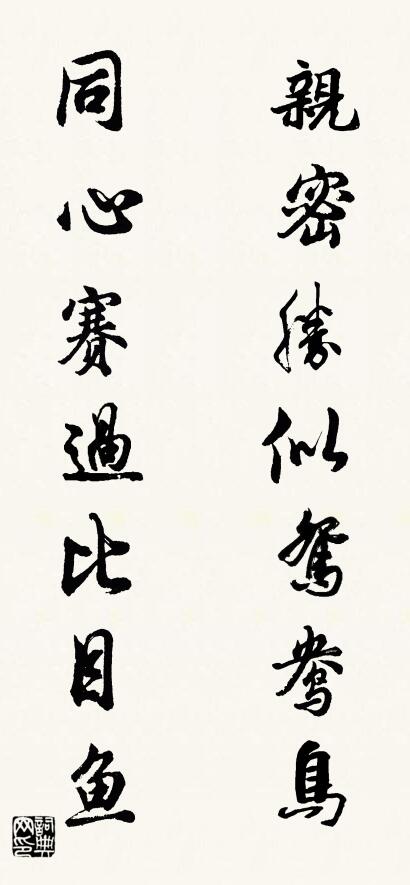 親密勝似鴛鴦鳥
同心賽過比目鱼
詞典网印